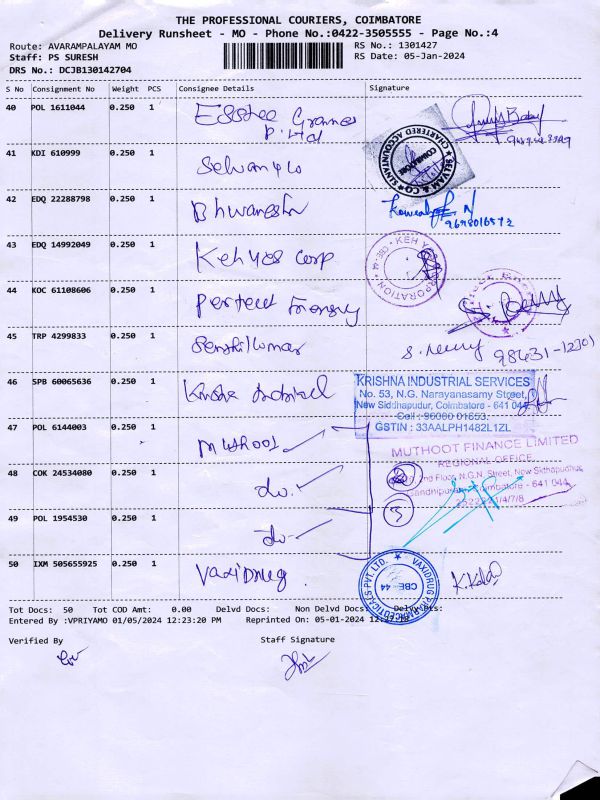 THE PROFESSIONAL COURIERS, COIMBATORE
Delivery Runsheet - MO - Phone No.:0422-3505555 - Page No.:4
Route: AVARAMPALAYAM MO
RS No.: 1301427
Staff: PS SURESH
RS Date: 05-Jan-2024
DRS No.: DCJB130142704
S No Consignment No Weight PCS Consignee Details Signature
40 POL 1611044 0.250 1
41 KDI 610999 0.250 1 Selvam & Co
SELVAM & CO CHARTERED ACCOUNTANTS COIMBATORE
42 EDQ 22288798 0.250 1 Bhuvanesh
9698016572
43 EDQ 14992049 0.250 1 Keh Yes Corp
KEH YES CORPORATION CBE-44
44 KOC 61108606 0.250 1 Perfect
45 TRP 4299833 0.250 1 Senthilkumar
98431-12301
46 SPB 60065636 0.250 1
KRISHNA INDUSTRIAL SERVICES
No. 53, N.G. Narayanasamy Street,
New Siddhapudur, Coimbatore - 641 044
Cell : 96000 01653
GSTIN : 33AALPH1482L1ZL
47 POL 6144003 0.250 1 Muthoot
MUTHOOT FINANCE LIMITED
REGIONAL OFFICE
2nd Floor, N.G.N. Street, New Sidhapudhur,
Gandhipuram, Coimbatore - 641 044
48 COK 24534080 0.250 1 do.
49 POL 1954530 0.250 1 do
3
50 IXM 505655925 0.250 1 Vaxidrug
VAXIDRUG PHARMACEUTICALS PVT. LTD. CBE - 44
K. Kala
Tot Docs: 50 Tot COD Amt: 0.00 Delvd Docs: Non Delvd Docs: Delvy Pts:
Entered By :VPRIYAMO 01/05/2024 12:23:20 PM Reprinted On: 05-01-2024
Verified By Staff Signature